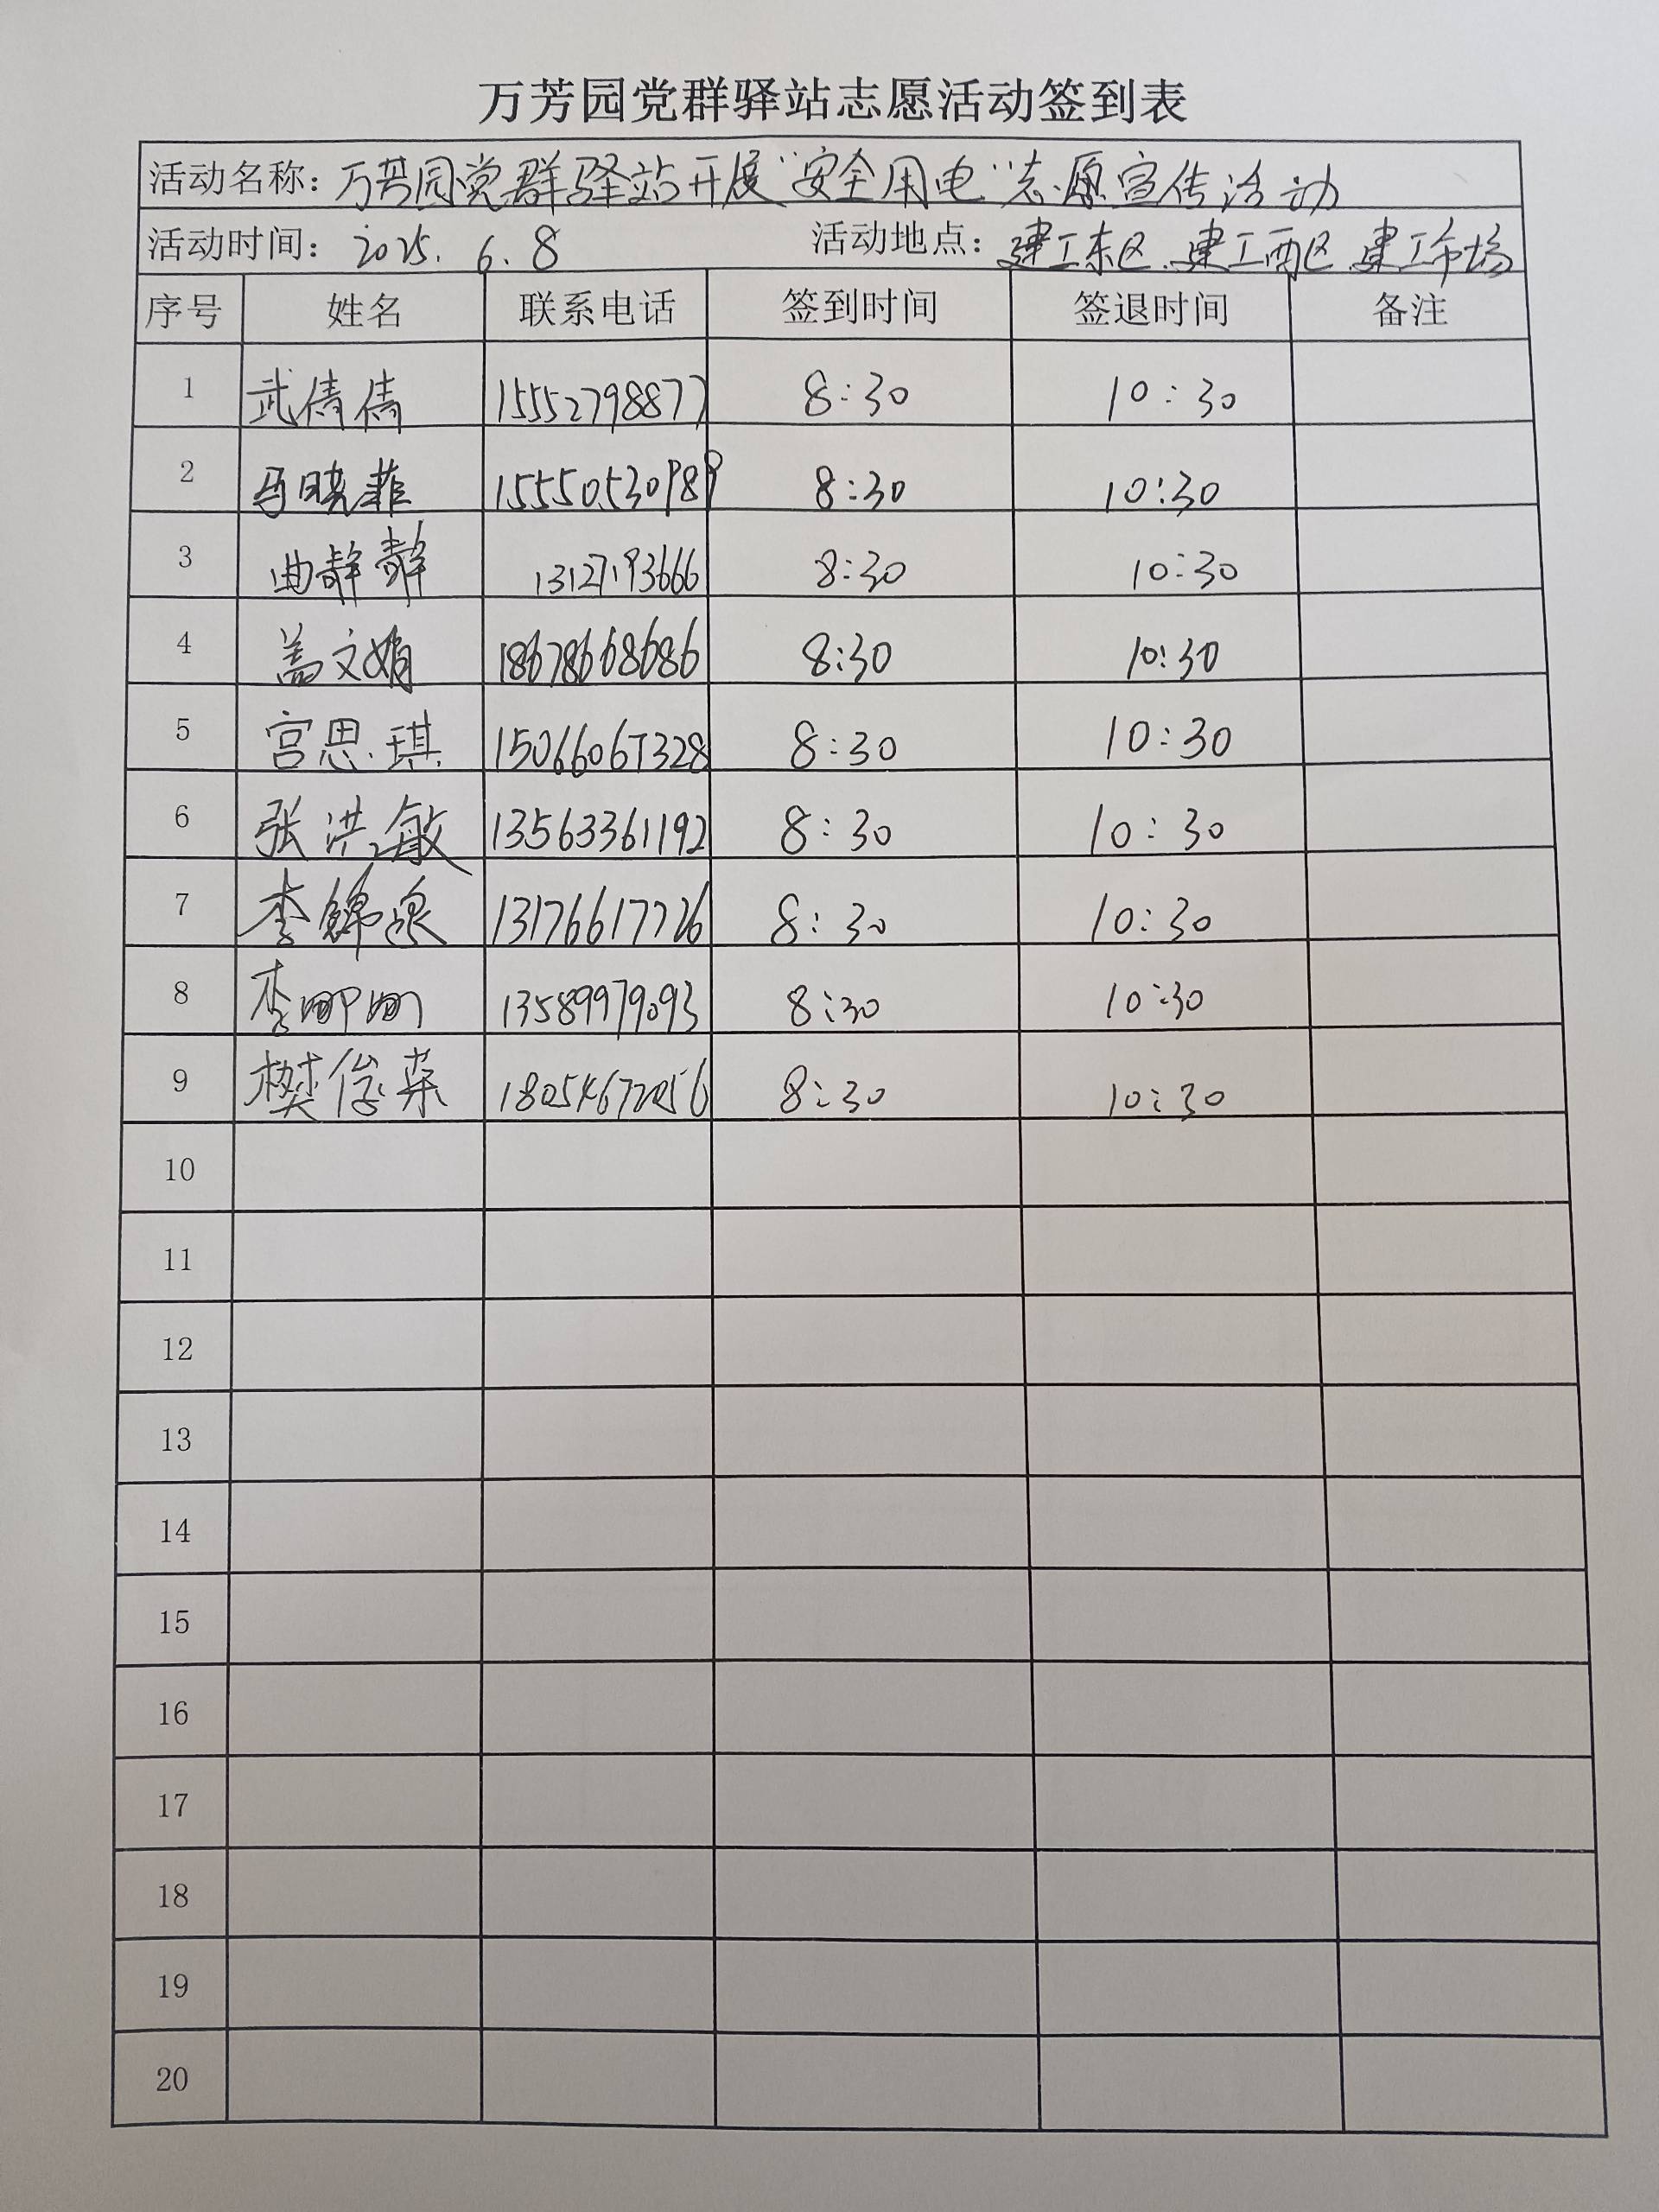 万芳园党群驿站志愿活动签到表
活动名称：万芳园党群驿站开展“安全用电”志愿宣传活动
活动时间：2025.6.8 活动地点：建工东区.建工西区 建工市场
序号 姓名 联系电话 签到时间 签退时间 备注
1 武倩倩 15552798877 8:30 10:30
2 马晓菲 15550530989 8:30 10:30
3 曲静静 13127193666 8:30 10:30
4 盖文娟 18678668686 8:30 10:30
5 宫思琪 15066067328 8:30 10:30
6 张洪敏 13563361192 8:30 10:30
7 李锦泉 13176617726 8:30 10:30
8 李娜娜 13589979093 8:30 10:30
9 樊俊荣 18054672056 8:30 10:30
10
11
12
13
14
15
16
17
18
19
20